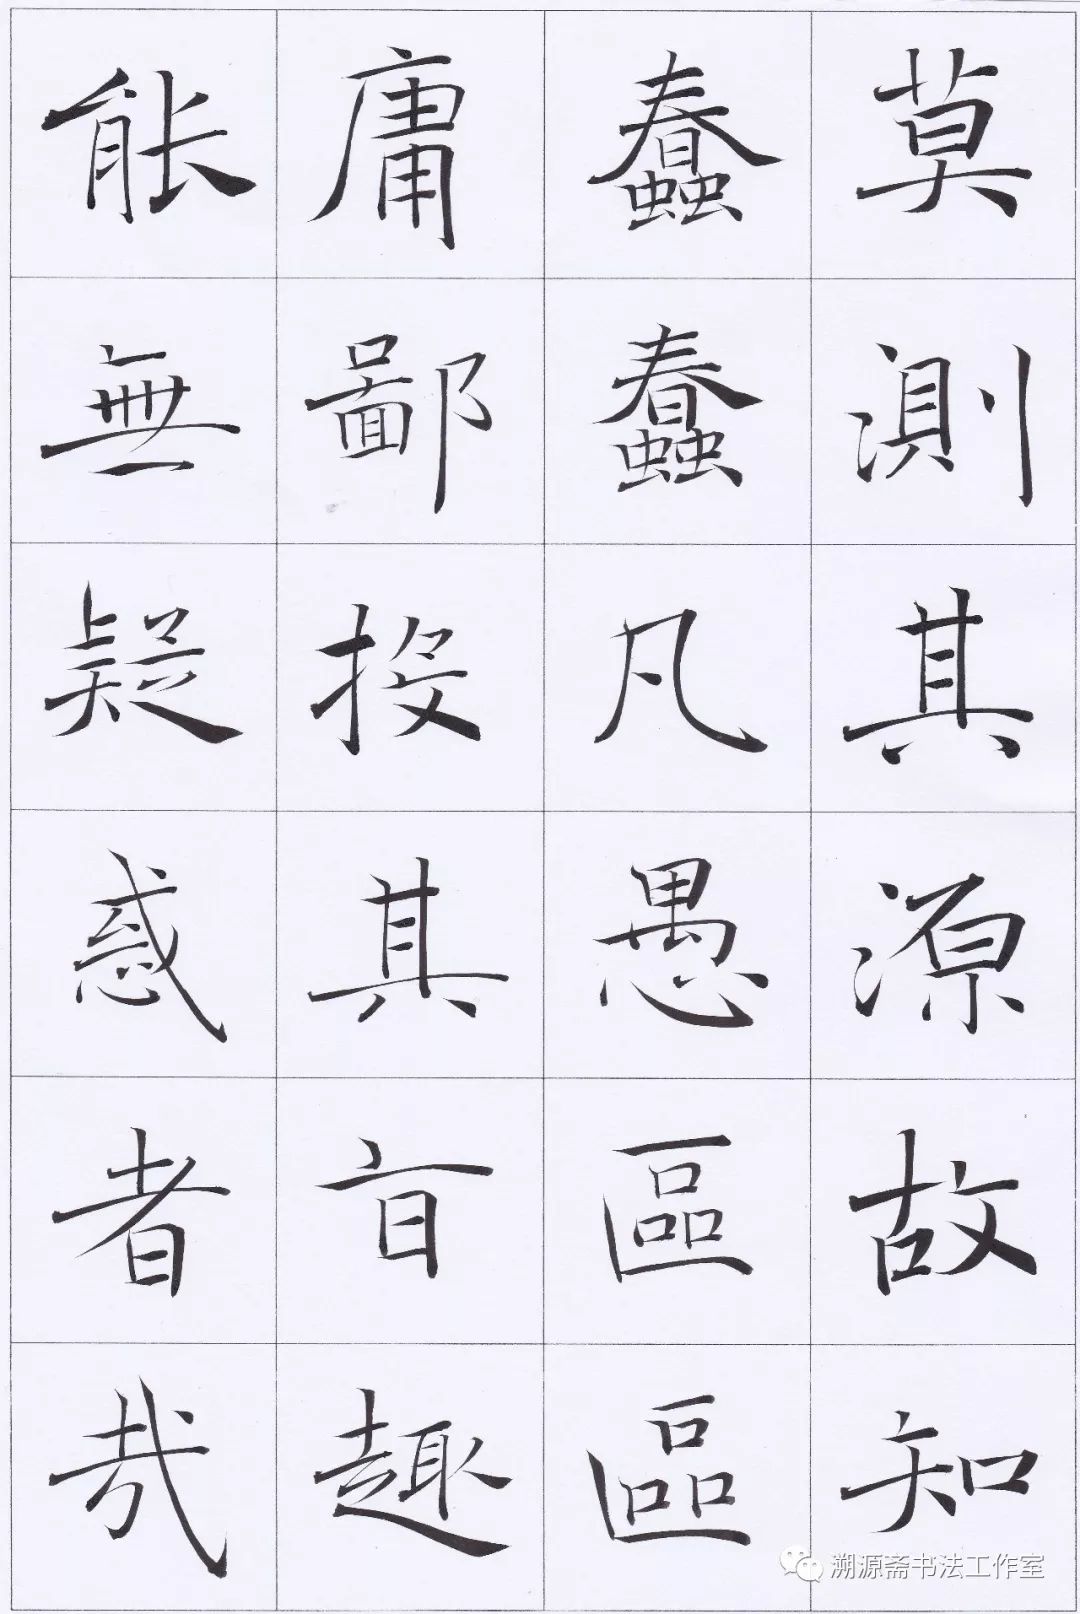 莫測其源故知
蠢蠢凡愚區區
庸鄙投其旨趣
能無疑惑者哉
溯源斋书法工作室